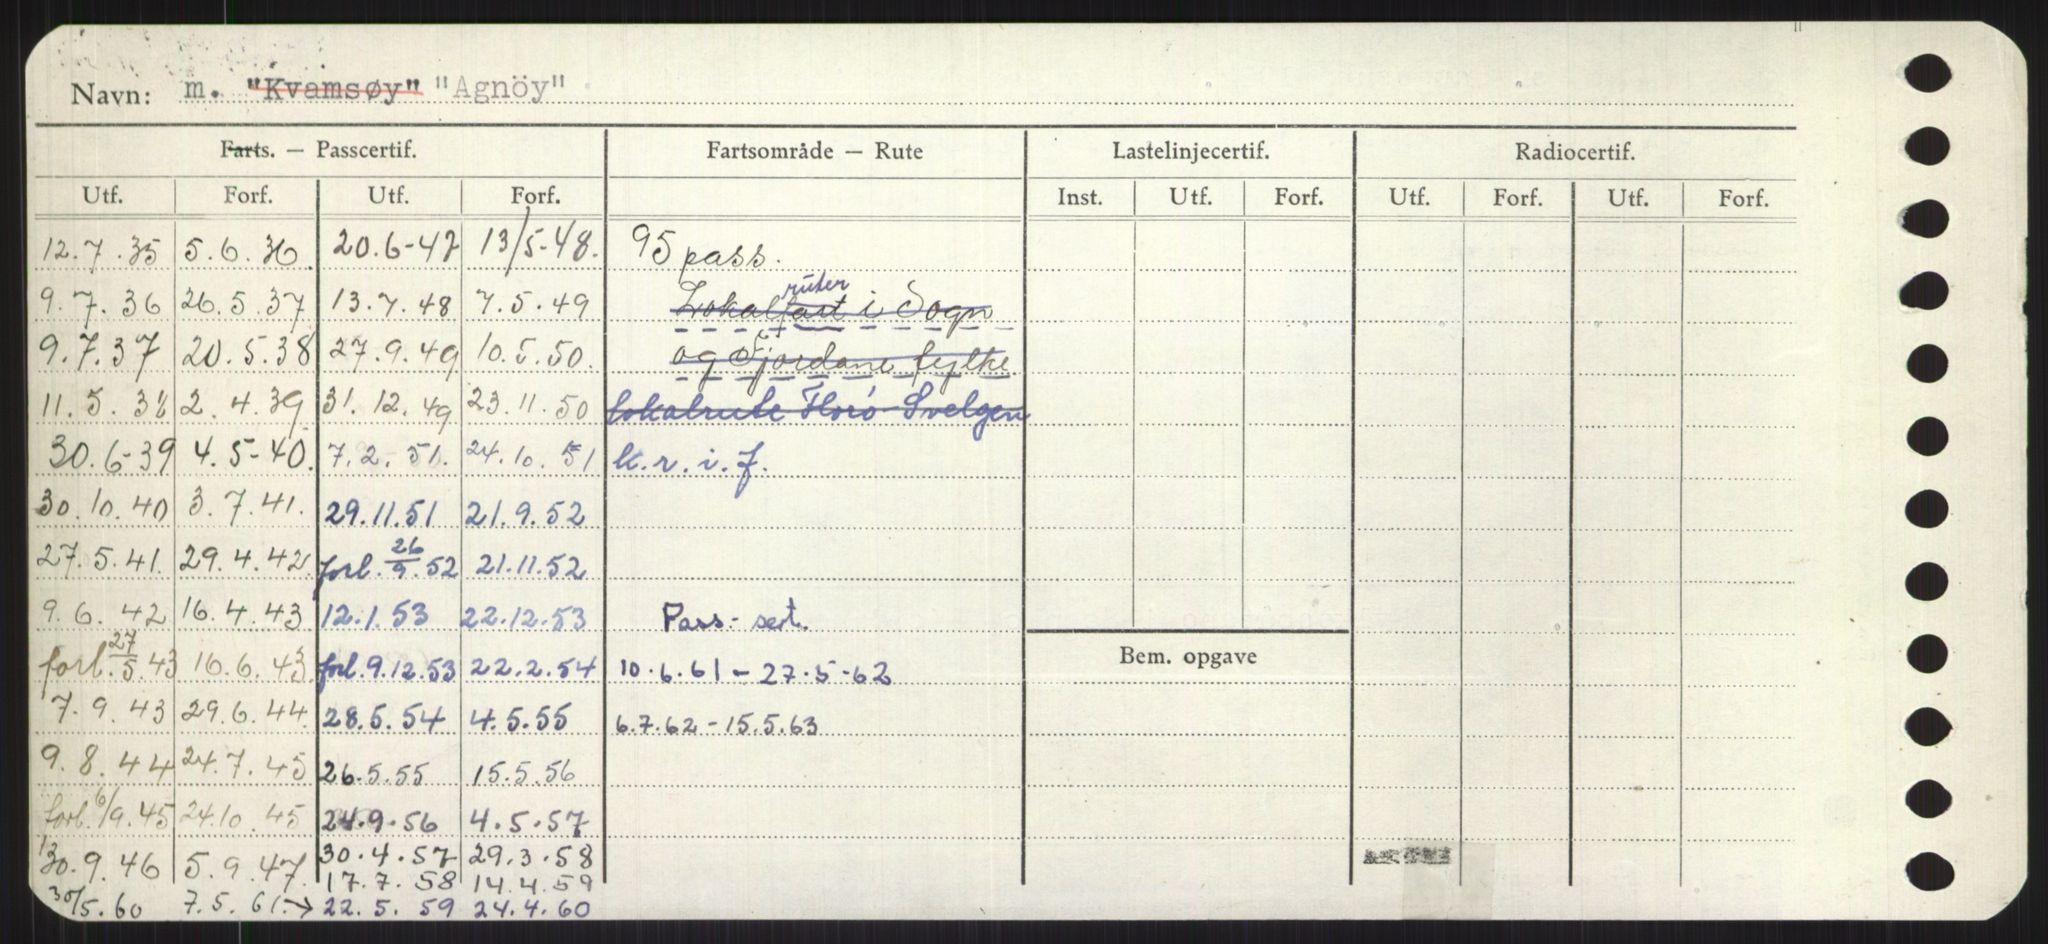 Navn: m. "Kvamsøy" "Agnöy"
Farts. — Passcertif. Fartsområde — Rute Lastelinjecertif. Radiocertif.
Utf. Forf. Utf. Forf. Inst. Utf. Forf. Utf. Forf. Utf. Forf.
12.7.35 5.6.36. 20.6-47 13/5-48. 95 pass.
ruter
9.7.36 26.5.37 13.7.48 7.5.49 Lokalfart i Sogn
9.7.37 20.5.38 27.9.49 10.5.50. og Fjordane fylke
11.5.38 2.4.39 31.12.49 23.11.50 Lokalrute Florö-Svelgen
30.6-39 4.5-40. 7.2.51. 24.10.51 k.r.i.f.
30.10.40 3.7.41. 29.11.51 21.9.52
27.5.41. 29.4.42 forl. 26/9.52 21.11.52
9.6.42 16.4.43 12.1.53 22.12.53 Pass.- sert.
forl. 27/5.43 16.6.43. forl.9.12.53 22.2.54 10.6.61 - 27.5.62 Bem. opgave
7.9.43 29.6.44. 28.5.54 4.5.55 6.7.62 - 15.5.63
9.8.44 24.7.45 26.5.55 15.5.56
forl. 6/9.45 24.10.45 24.9.56 4.5.57
30.9.46 5.9.47. 30.4.57 29.3.58
17.7.58 14.4.59
30/5.60 7.5.61.→ 22.5.59 24.4.60